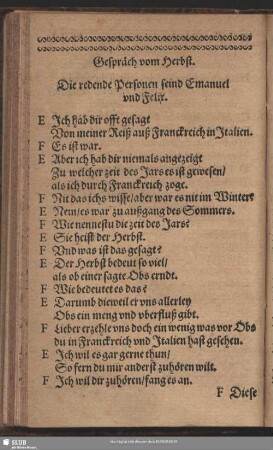 Gespräch vom Herbst.
Die redende Personen seind Emanuel
vnd Felix.
E Ich hab dir offt gesagt
Von meiner Reiß auß Franckreich in Italien.
F Es ist war.
E Aber ich hab dir niemals angezeigt
Zu welcher zeit des Jars es ist gewesen/
als ich durch Franckreich zoge.
F Nit das ichs wisse/ aber war es nit im Winter?
E Nein/ es war zu außgang des Sommers.
F Wie nennestu die zeit des Jars?
E Sie heist der Herbst.
F Vnd was ist das gesagt?
E Der Herbst bedeut so viel/
als ob einer sagte Obs erndt.
F Wie bedeutet es das?
E Darumb dieweil er vns allerley
Obs ein meng vnd vberfluß gibt.
F Lieber erzehle vns doch ein wenig was vor Obs
du in Franckreich vnd Italien hast gesehen.
E Ich wil es gar gerne thun/
So fern du mir anderst zuhören wilt.
F Ich wil dir zuhören/ fang es an.
F Diese
SLUB